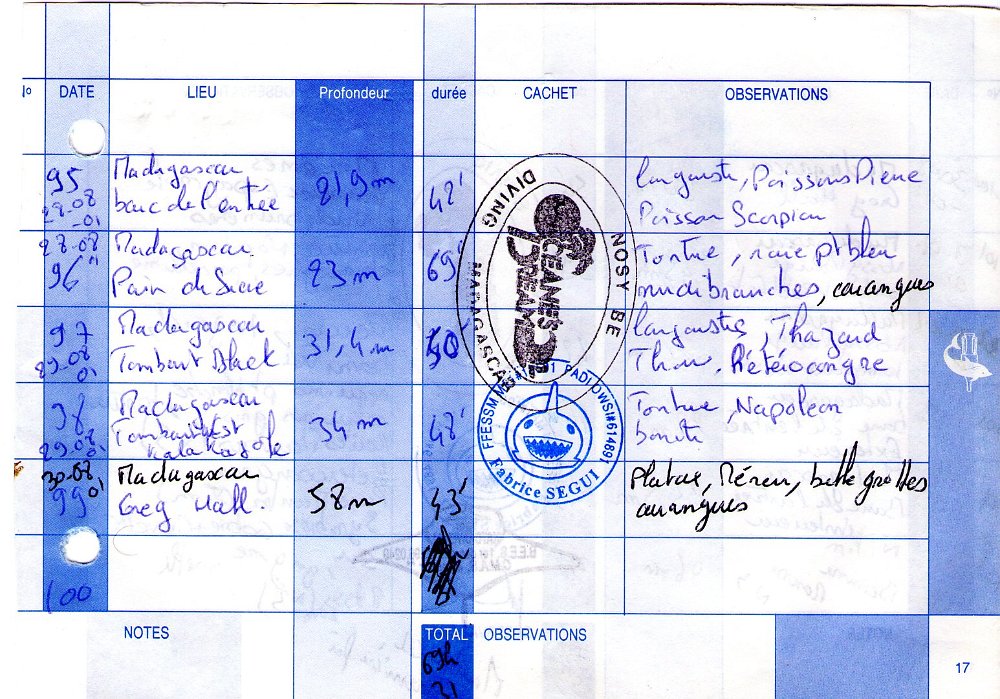 N° DATE LIEU Profondeur durée CACHET OBSERVATIONS
95 Madagascar 21,9m 42' langouste, Poissons Pierre
28-08-01 banc de l'entrée Poisson Scorpion
28-08-01 Madagascar 23m 69' Tortue, raie pt bleu
96 Pain de Sucre nudibranches, carangues
97 Madagascar 31,4m 40 langoustes, Thazard
29-08-01 Tombant Black Thon, Hétérocongre
98 Madagascar 34m 42' Tortue, Napoleon
29-08-01 Tombant bonite
30-08-01 Madagascar 58m 43' Platax, Mérou, belle grottes
99 Greg Wall. carangues
100
DIVING
OCEANE'S
DREAM
NOSY BE
MADAGASCAR
FFESSM PADI OWSI#614891
Fabrice SEGUI
NOTES TOTAL OBSERVATIONS
69h
31
17